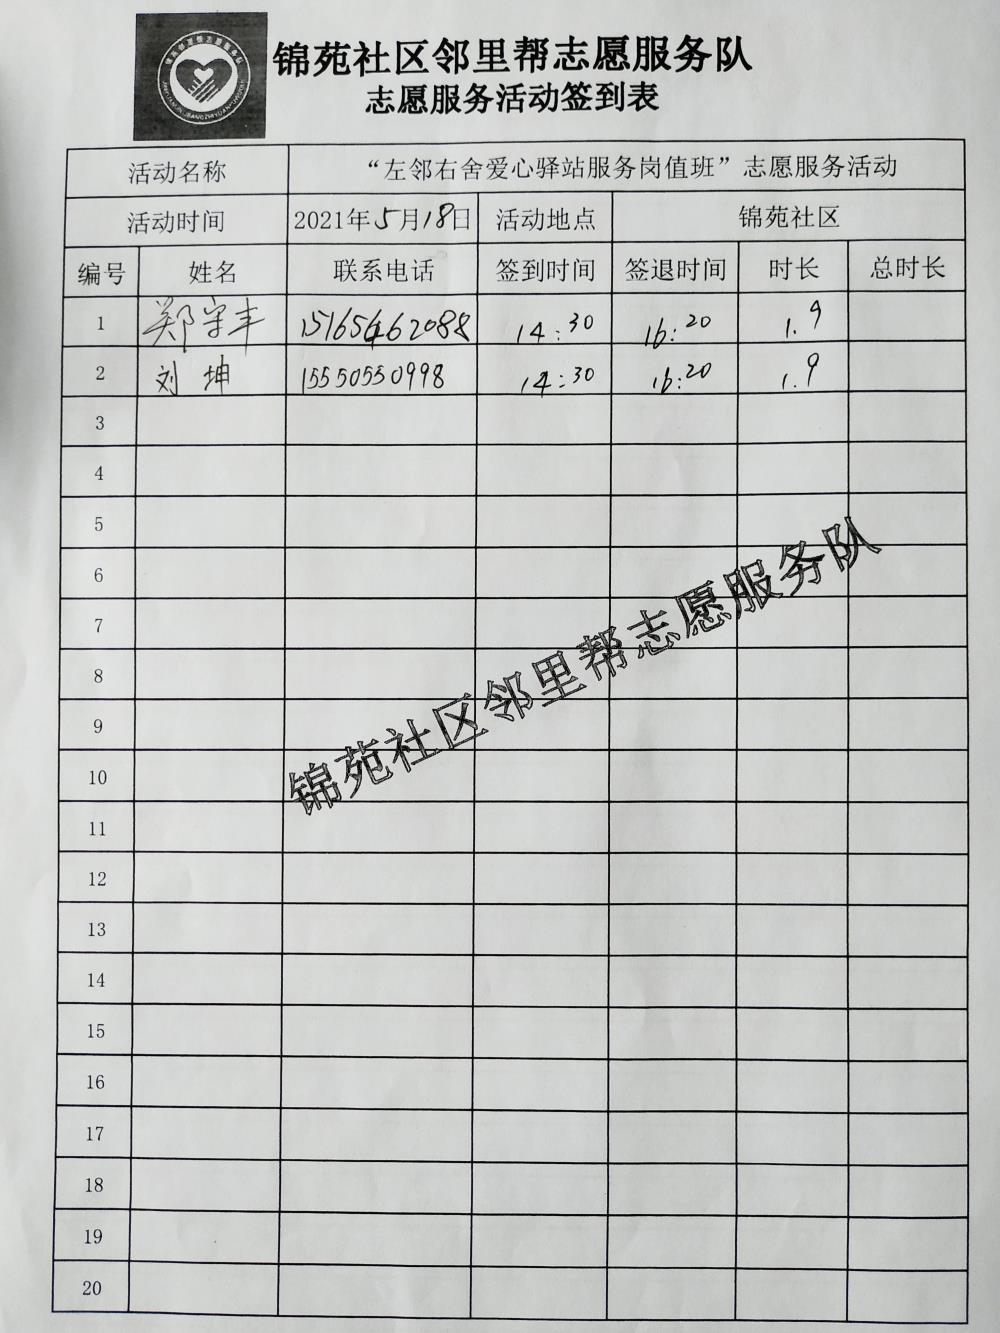 锦苑社区邻里帮志愿服务队
志愿服务活动签到表
活动名称 “左邻右舍爱心驿站服务岗值班”志愿服务活动
活动时间 2021年5月18日 活动地点 锦苑社区
编号 姓名 联系电话 签到时间 签退时间 时长 总时长
1 郑宇丰 15165462088 14:30 16:20 1.9
2 刘坤 15550550998 14:30 16:20 1.9
3
4
5
6
7
8
9
10
11
12
13
14
15
16
17
18
19
20
锦苑社区邻里帮志愿服务队